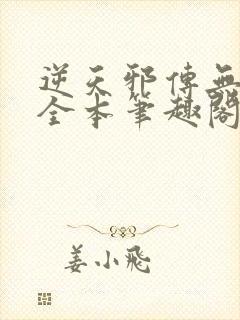 逆天邪傳無
全本筆趣閣
姜小飛